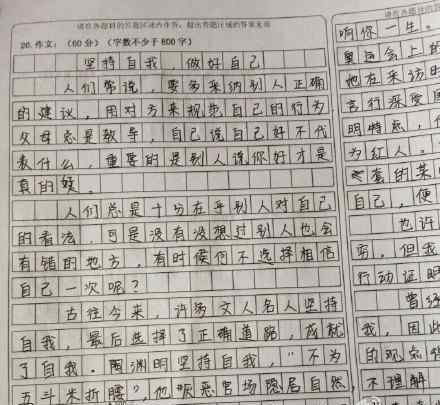 请在各题目的答题区域内作答,超出答题区域的答案无效
26.作文:(60分)(字数不少于800字)
坚持自我,做好自己
人们常说,要多采纳别人正确
的建议,用对方来规范自己的行为
父母总是教导,自己说自己好不代
表什么,重要的是别人说你好才是
真的好。
人们总是十分在乎别人对自己
的看法,可是没有没想过别人也会
有错的地方,有时候何不选择相信
自己一次呢?
古往今来,许多文人名人坚持
自我,最后选择了正确道路,成就
了自我。陶渊明坚持自我,“不为
五斗米折腰”,他厌恶官场隐居自然
响你一生。
奥运会上的
他在采访时
言行深受
明特点,
为红人。
套的某
自己,便
也许
穷,但我
行动证明
曾经
我,因此
的观众
不理解